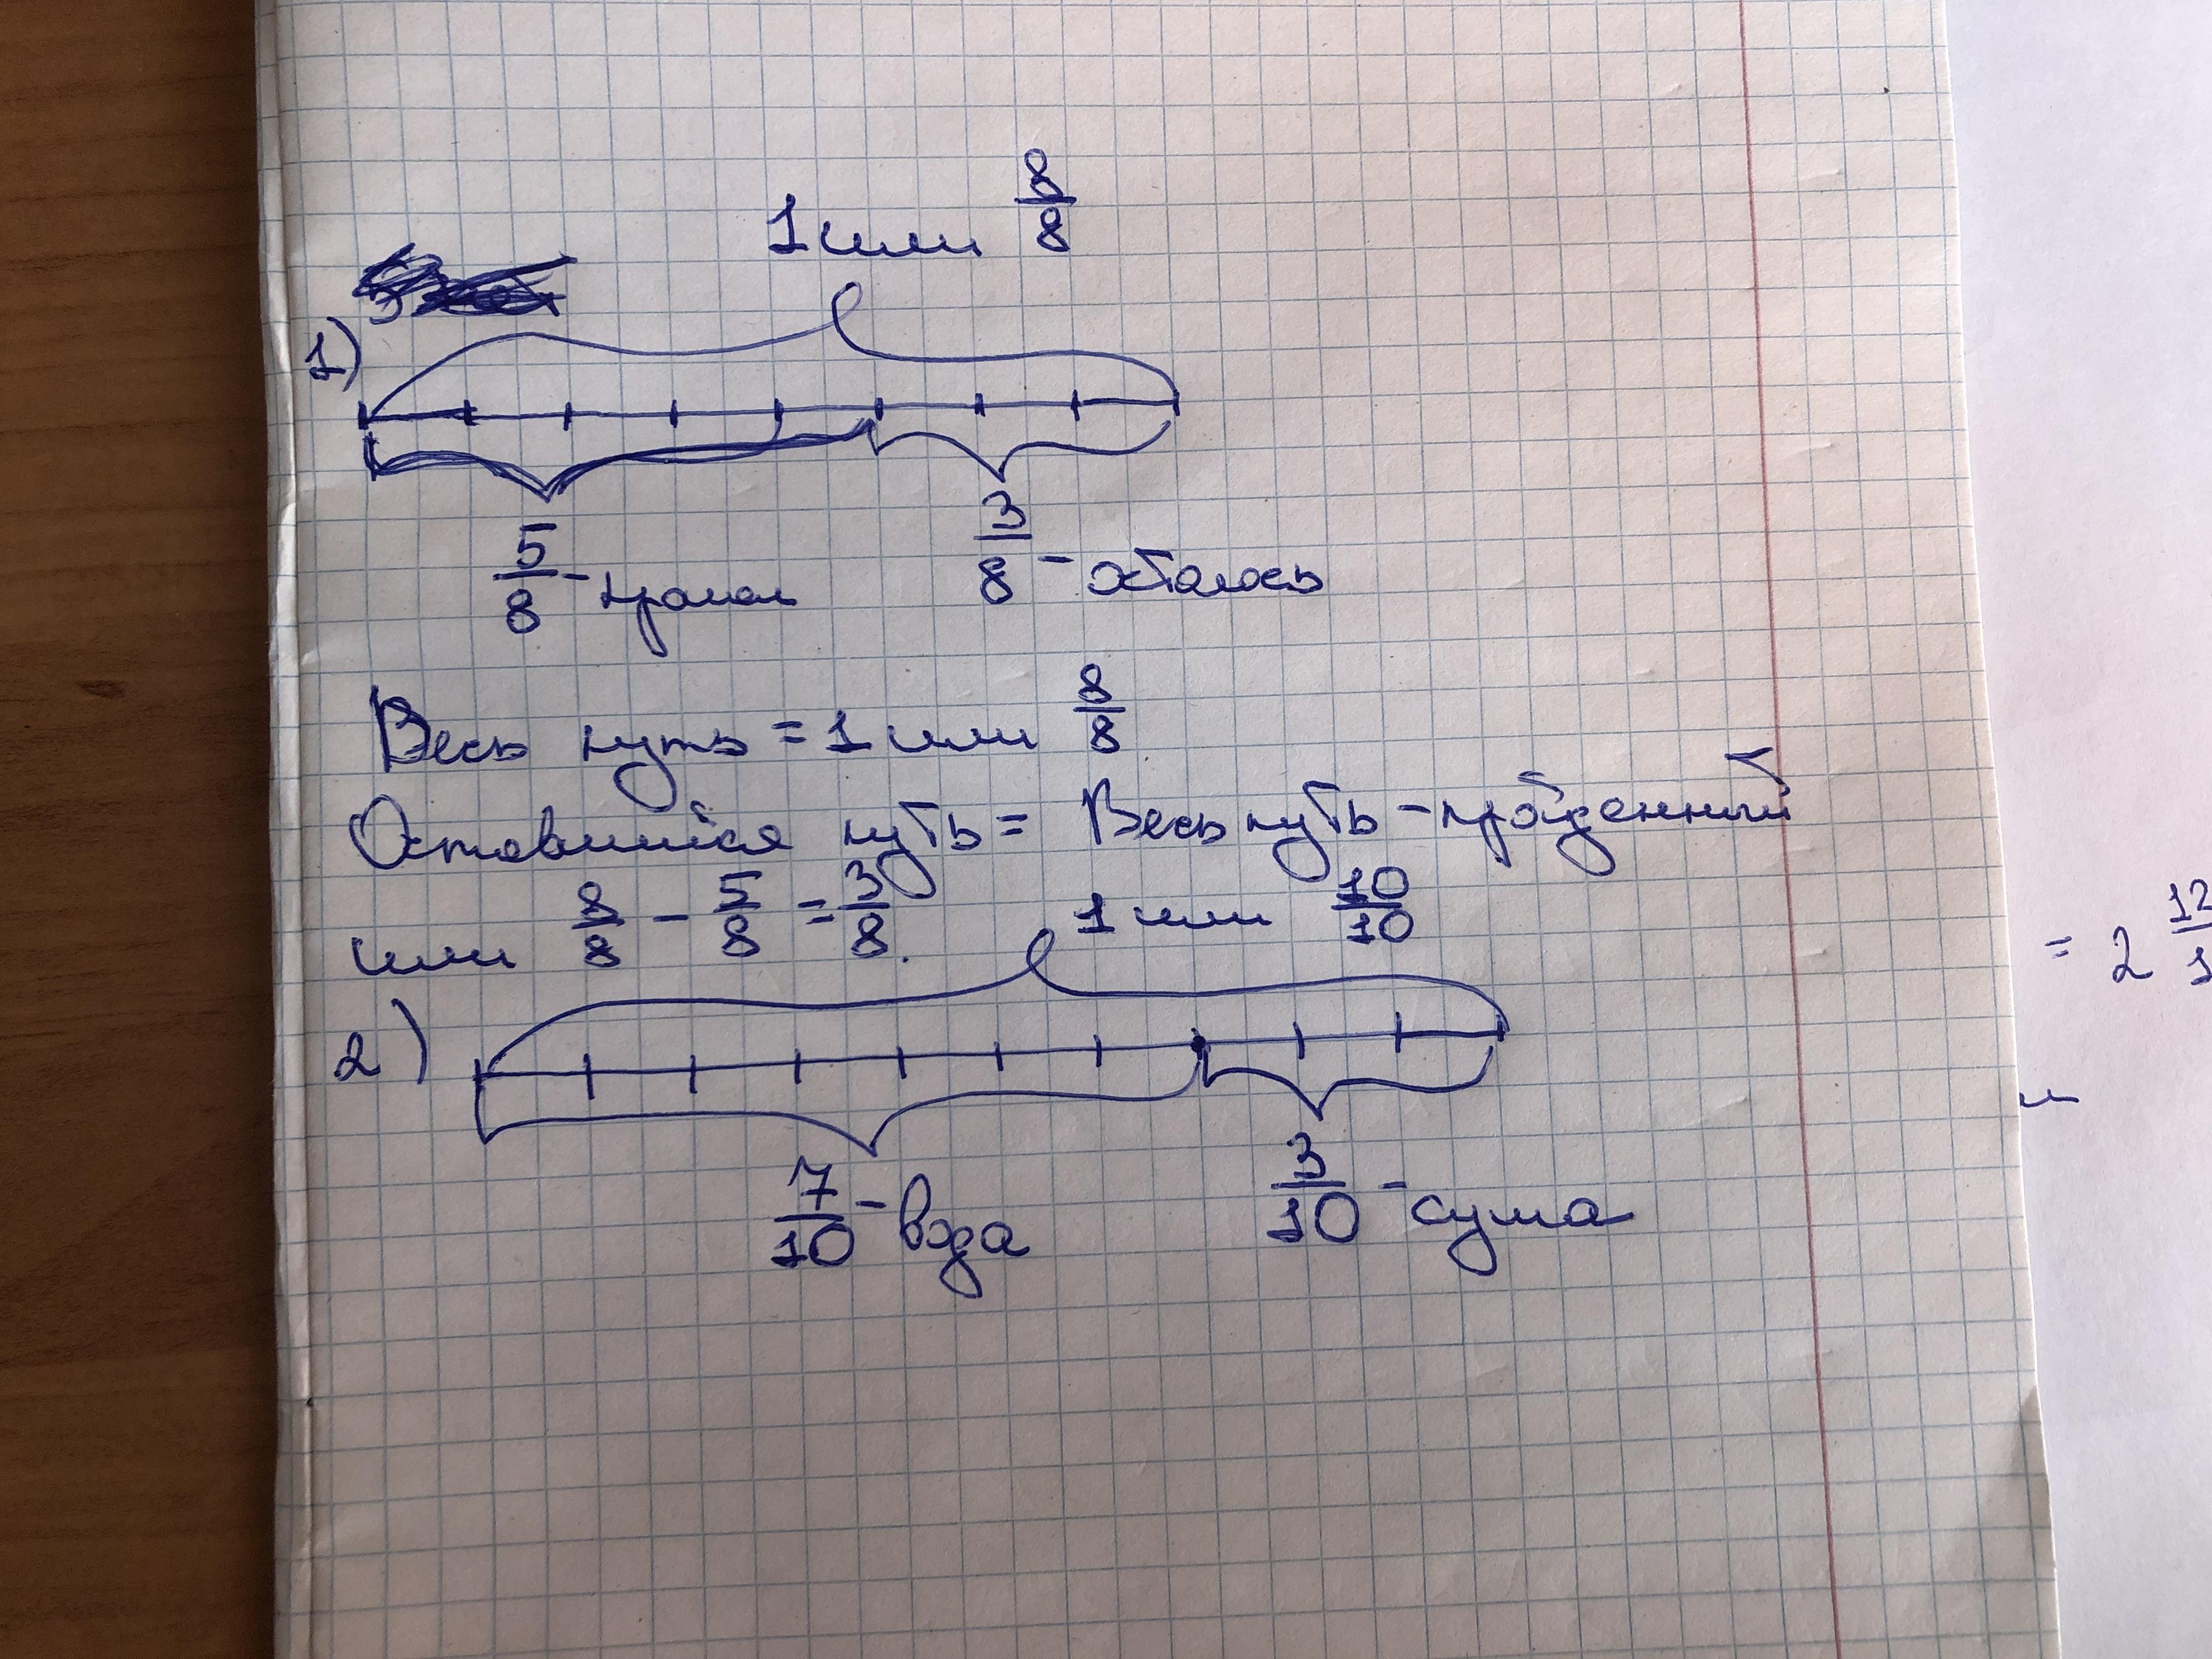 1 или 8/8
1)
5/8 - прошел 3/8 - осталось
Весь путь = 1 или 8/8
Оставшийся путь = Весь путь - пройденный
или 8/8 - 5/8 = 3/8.
1 или 10/10
2)
7/10 - вода 3/10 - суша
= 2 12/1